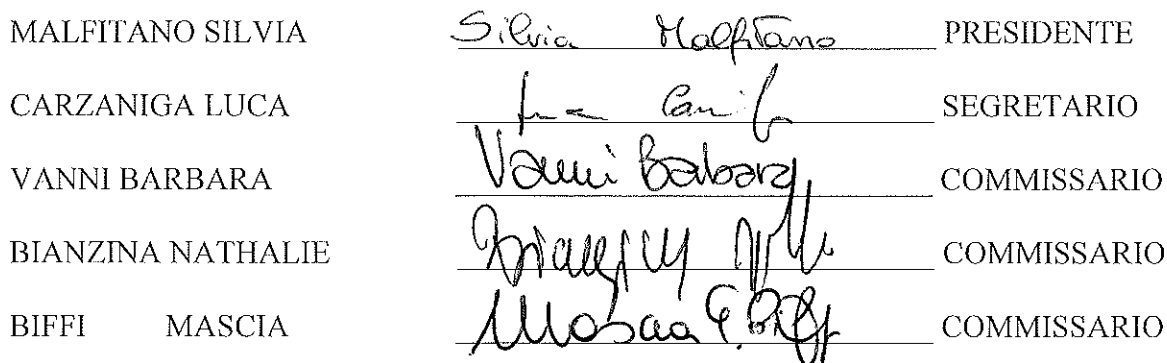 MALFITANO SILVIA Silvia Malfitano PRESIDENTE
CARZANIGA LUCA SEGRETARIO
VANNI BARBARA Vanni Barbara COMMISSARIO
BIANZINA NATHALIE COMMISSARIO
BIFFI MASCIA Mascia COMMISSARIO